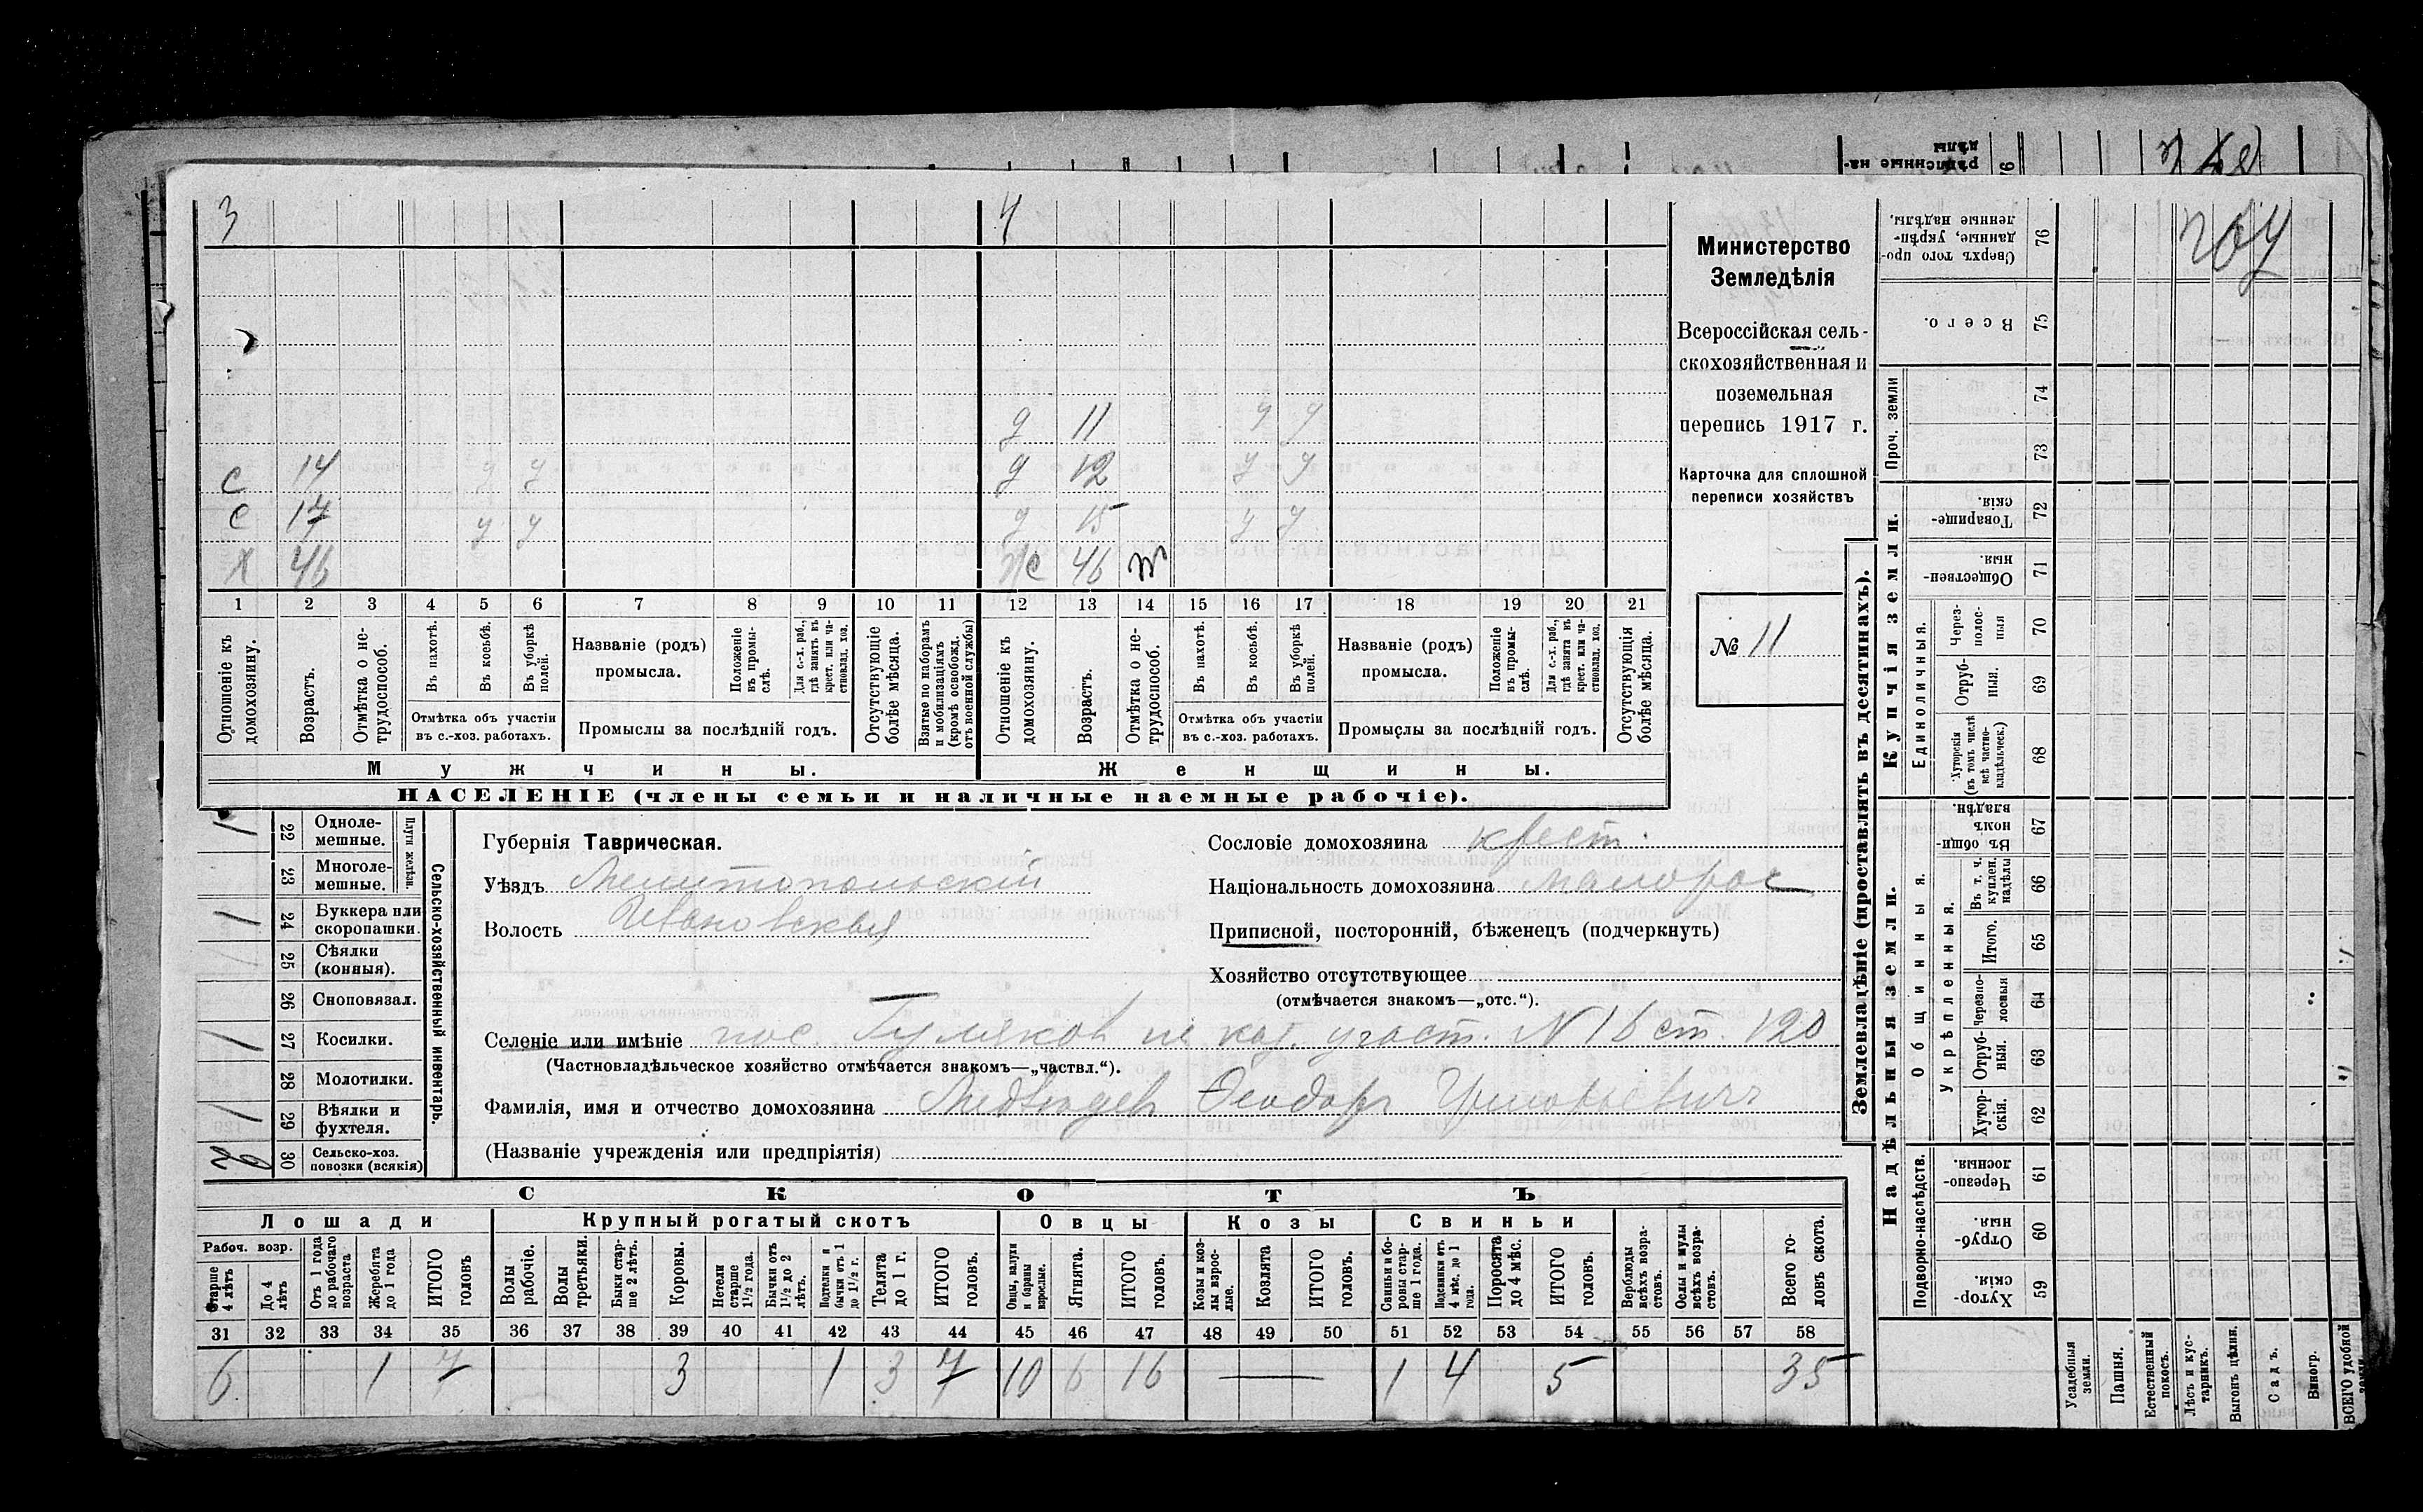 3 4
Министерство
Земледѣлія
Всероссійская сель-
скохозяйственная и
поземельная
перепись 1917 г.
Карточка для сплошной
переписи хозяйствъ
№ 11
д 11 у у
с 14 у у д 12 у у
с 17 у у д 15 у у
х 46 ж 46
1 2 3 4 5 6 7 8 9 10 11 12 13 14 15 16 17 18 19 20 21
Отношеніе къ домохозяину.
Возрастъ.
Отмѣтка о не-трудоспособ.
Въ пахотѣ.
Въ косьбѣ.
Въ уборкѣ полей.
Отмѣтка объ участіи
въ с.-хоз. работахъ.
Названіе (родъ)
промысла.
Положеніе въ промы-слѣ.
Для с.-х. раб., гдѣ занятъ въ крест. или ча-стновлад. хоз.
Промыслы за послѣдній годъ.
Отсутствующіе болѣе мѣсяца.
Взятые по наборамъ и мобилизаціямъ (кромѣ освобожд. отъ военной службы)
Отношеніе къ домохозяину.
Возрастъ.
Отмѣтка о не-трудоспособ.
Въ пахотѣ.
Въ косьбѣ.
Въ уборкѣ полей.
Отмѣтка объ участіи
въ с.-хоз. работахъ.
Названіе (родъ)
промысла.
Положеніе въ промы-слѣ.
Для с.-х. раб., гдѣ занята въ крест. или ча-стновлад. хоз.
Промыслы за послѣдній годъ.
Отсутствующія болѣе мѣсяца.
Мужчины. Женщины.
НАСЕЛЕНІЕ (члены семьи и наличные наемные рабочіе).
Сельско-хозяйственный инвентарь.
Плуги желѣзн.
1 22 Одноле-мешные.
23 Многоле-мешные.
1 24 Буккера или скоропашки.
25 Сѣялки (конныя).
26 Сноповязал.
1 27 Косилки.
28 Молотилки.
1 29 Вѣялки и фухтеля.
2 30 Сельско-хоз. повозки (всякія)
Губернія Таврическая.
Уѣздъ Мелитопольскій
Волость Ивановская
Сословіе домохозяина крест.
Національность домохозяина малорос
Приписной, посторонній, бѣженецъ (подчеркнуть)
Хозяйство отсутствующее
(отмѣчается знакомъ—„отс.“).
Селеніе или имѣніе пос. участ. № 16 ст. 120
(Частновладѣльческое хозяйство отмѣчается знакомъ—„частвл.“).
Фамилія, имя и отчество домохозяина Медвѣдевъ Ѳеодоръ
(Названіе учрежденія или предпріятія)
СКОТЪ
Лошади Крупный рогатый скотъ Овцы Козы Свиньи
Рабоч. возр.
Старше 4 лѣтъ
До 4 лѣтъ
Отъ 1 года до рабочаго возраста
Жеребята до 1 года
ИТОГО головъ
Волы рабочіе.
Волы третьяки.
Быки стар-ше 2 лѣтъ.
Коровы.
Нетели старше 1½ года.
Бычки отъ 1½ до 2 лѣтъ.
Подтелки и бычки отъ 1 до 1½ г.
Телята до 1 г.
ИТОГО головъ.
Овцы, валухи и бараны взрослые.
Ягнята.
ИТОГО головъ.
Козы и коз-лы взрос-лые.
Козлята
ИТОГО головъ.
Свиньи и бо-ровы стар-ше 1 года.
Подсвинки отъ 4 мѣс. до 1 года.
Поросята до 4 мѣс.
ИТОГО головъ.
Верблюды всѣхъ возра-стовъ.
Ослы и мулы всѣхъ возра-стовъ.
Всего го-ловъ скота.
31 32 33 34 35 36 37 38 39 40 41 42 43 44 45 46 47 48 49 50 51 52 53 54 55 56 57 58
6 1 7 3 1 3 7 10 6 16 — 1 4 5 35
Землевладѣніе (проставлять въ десятинахъ).
Надѣльныя земли. Купчія земли.
Подворно-наслѣдств.
Общинныя.
Укрѣпленныя.
Единоличныя.
Проч. земли
Хутор-скія. 59
Отруб-ныя. 60
Черезпо-лосныя. 61
Хутор-скія. 62
Отруб-ныя. 63
Черезпо-лосныя 64
Итого. 65
Въ т. ч. куплен. надѣлы 66
Въ общин-номъ владѣн. 67
Хуторскія (въ томъ числѣ всѣ частно-владѣльческ.) 68
Отруб-ныя. 69
Через-полос-ныя 70
Обществен-ныя. 71
Товарище-скія. 72
73
74
Всего. 75
Сверхъ того про-данные, укрѣп-ленные надѣлы. 76
Усадебныя земли.
Пашня.
Естественный покосъ.
Лѣсъ и кус-тарникъ.
Выгонъ цѣлин.
Садъ.
Виногр.
ВСЕГО удобной